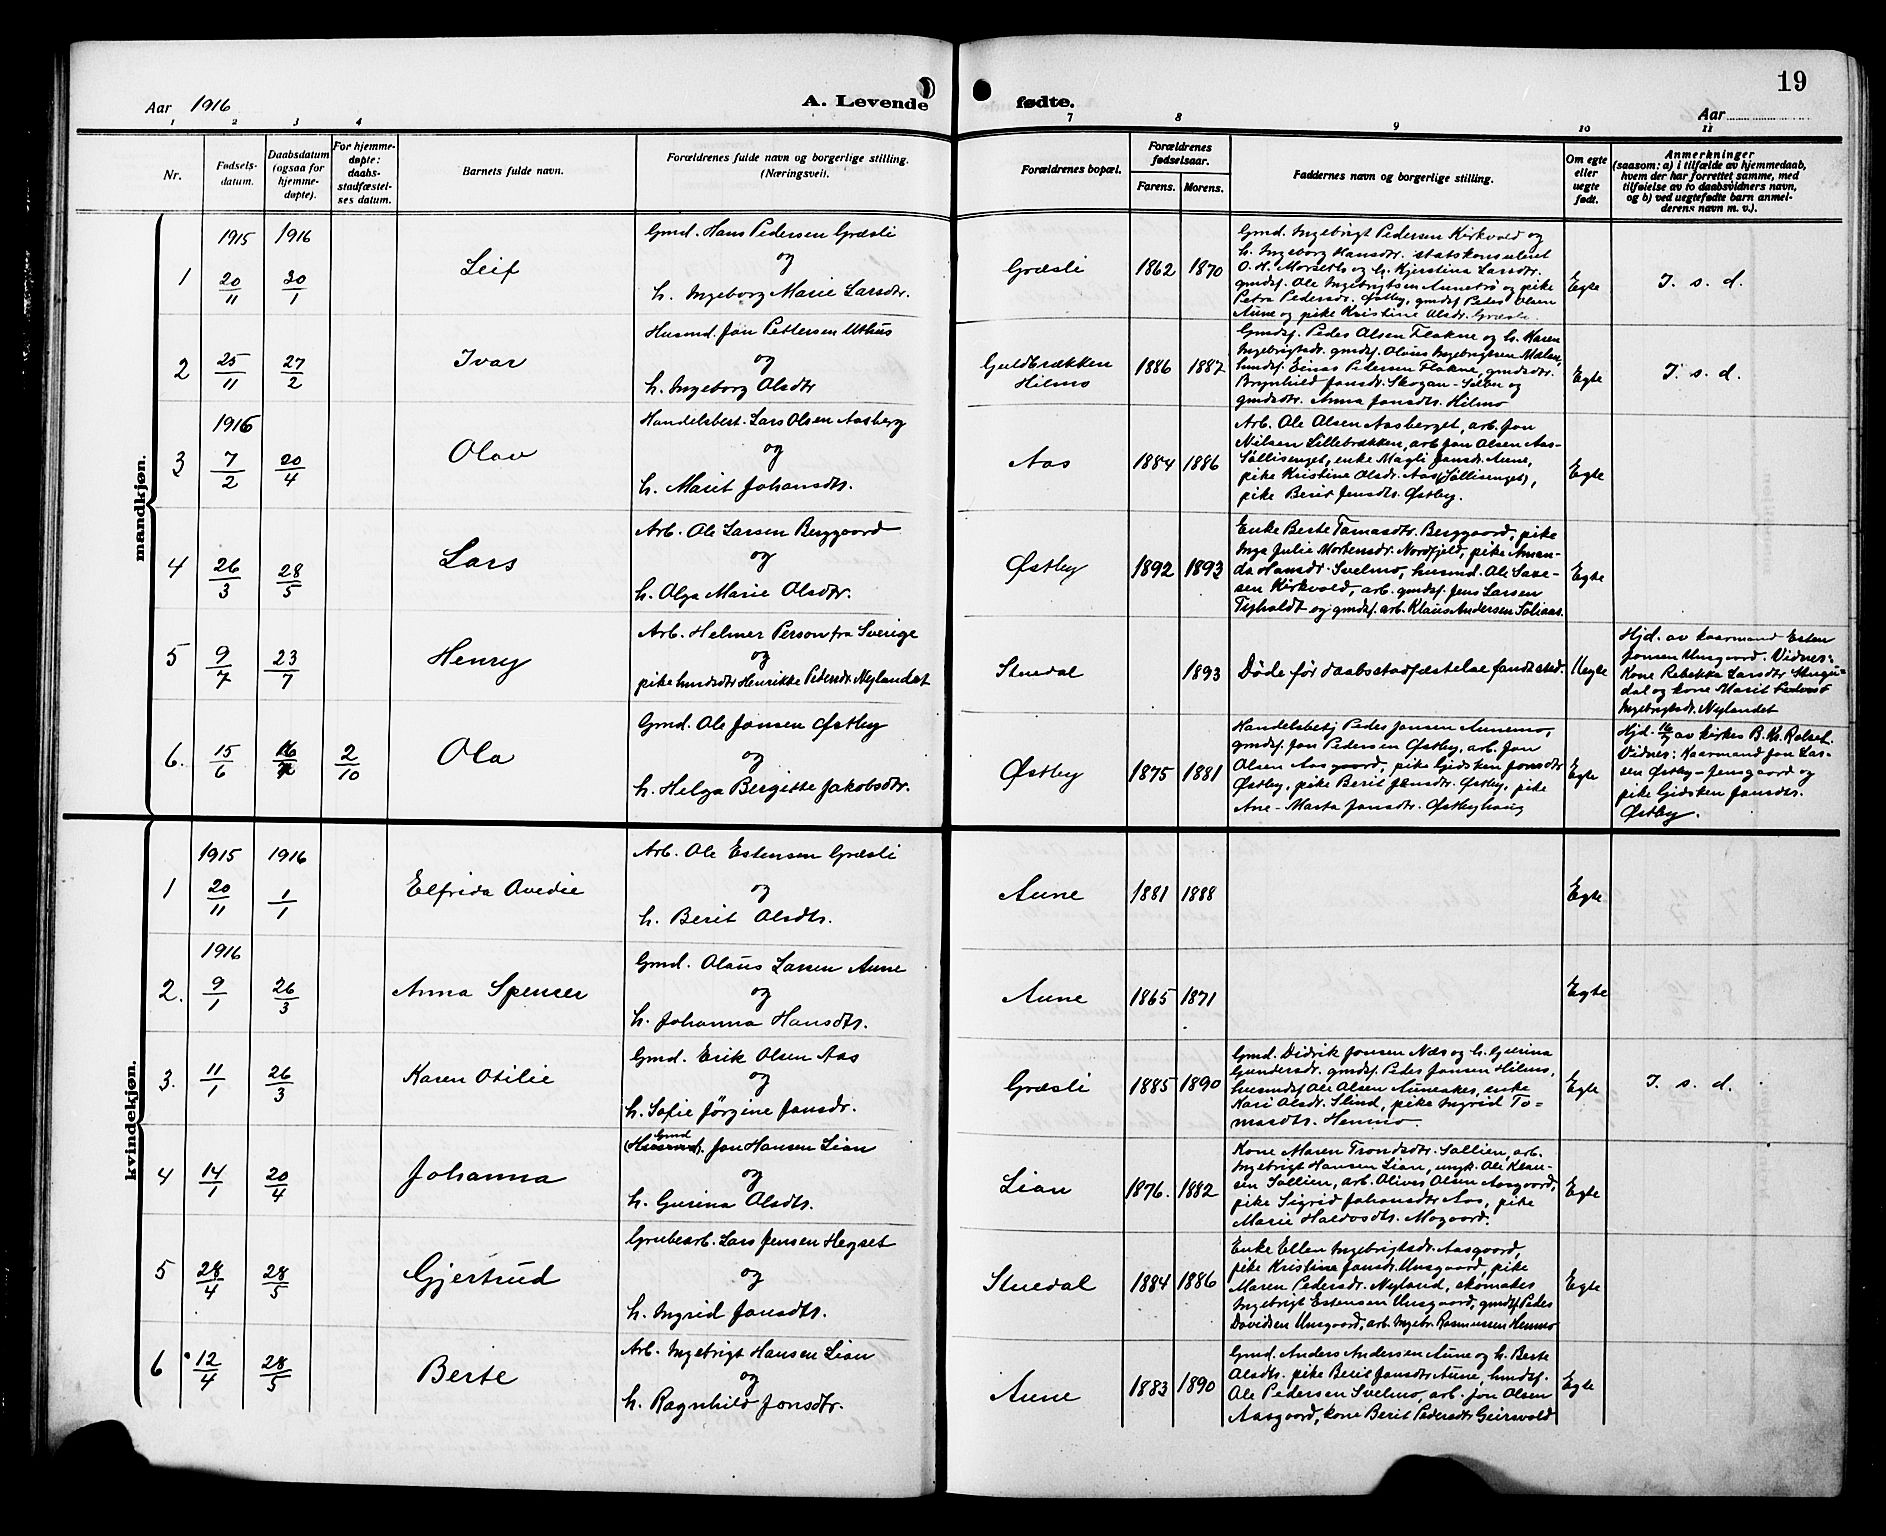 19
Aar 1916
A. Levende fødte.
Aar
1 2 3 4 7 8 9 10 11
Nr.
Fødsels-
datum.
Daabsdatum
(ogsaa for
hjemme-
døpte).
For hjemme-
døpte:
daabs-
stadfæstel-
ses datum.
Barnets fulde navn.
Forældrenes fulde navn og borgerlige stilling.
(Næringsvei).
Forældrenes bopæl.
Forældrenes
fødselsaar.
Farens. Morens.
Faddernes navn og borgerlige stilling.
Om egte
eller
uegte
født.
Anmerkninger
(saasom: a) i tilfælde av hjemmedaab,
hvem der har forrettet samme, med
tilføielse av to daabsvidners navn,
og b) ved uegtefødte barn anmel-
derens navn m. v.).
mandkjøn.
1915 1916
1 20/11 30/1 Leif
Gmd. Hans Pedersen Græsli
og
h. Ingeborg Marie Larsdtr.
Græsli 1862 1870
Gmd. Ingebrigt Pedersen Kirkvold og
h. Ingeborg Hansdtr. statskonsulent
O. H. Morseth og h. Kjerstina Larsdtr.
gmdsf. Ole Ingebrigtsen Aunetrø og pike
Petra Pedersdr. Østby, gmdsf. Peder Olsen
Aune og pike Kristine Olsdr. Græsli.
Egte I. s. d.
2 25/11 27/2 Ivar
Husmd. Jon Pettersen Uthus
og
h. Ingeborg Olsdtr
Guldbrækken
Hilmo 1886 1887
Gmdsf. Peder Olsen Flakne og h. Karen
Ingebrigtsdr. gmdsf. Olaus Ingebrigtsen Mælan,
hmdsf. Einar Petersen Flakne, gmdsdtr.
Brynhild Jonsdr. Skogan-Selbu og
gmdsdtr. Anna Jonsdtr. Hilmo
Egte I. s. d.
1916
3 7/2 20/4 Olav
Handelsbest. Lars Olsen Aasberg
og
h. Marit Johansdtr.
Aas 1884 1886
Arb. Ole Olsen Aasberget, arb. Jon
Nilsen Lillebrækken, arb Jon Olsen Aas-
Søllisenget, enke Magli Jonsdr. Aune,
pike Kristine Olsdr. Aas (Søllisenget),
pike Berit Jensdtr. Østby.
Egte
4 26/3 28/5 Lars
Arb. Ole Larsen Berggaard
og
h. Olga Marie Olsdtr.
Østby 1892 1893
Enke Berte Tamasdtr. Berggaard, pike
Inga Julie Mortensdr. Nordfjeld, pike Aman-
da Hansdr. Svelmo, husmd. Ole Lars-
sen Kirkvold, arb. gmdsf. Jens Larsen
Tyholdt og gmdsf. arb. Klaus Andersen Soliaas.
Egte
5 9/7 23/7 Henry
Arb. Helmer Person fra Sverige
og
pike hmdsdtr Henrikke Pedersdr. Nylandet
Stuedal 1893
Døde før daabsstadfæstelse fandt sted.
Uegte
Hjd. av kaarmand Esten
Jonsen Unsgaard. Vidner:
Kone Rebekka Larsdtr Stugu-
dal og kone Marit
Ingebrigtsdr. Nylandet
6. 15/6 16/7 2/10 Ola
Gmd. Ole Jonsen Østby
og
h. Helga Bergitte Jakobsdtr.
Østby 1875 1881
Handelsbetj Peder Jonsen Aunemo,
gmdsf. Jon Pedersen Østby, arb. Jon
Olsen Aasgaard, pike Gjidsken Jonsdtr
Østby, pike Berit Jensdtr. Østby, pike
Ane-Marta Jonsdtr. Østbyhaug
Egte
Hjd. 16/7 av kirkes B. Kr. Rolset
Vidner: Kaarmand Jon Lar-
sen Østby-Jensgaard og
pike Gjidsken Jonsdtr.
Østby.
kvindekjøn.
1915 1916
1 20/11 1/1 Elfrida Ovedie
Arb. Ole Estensen Græsli
og
h. Berit Olsdtr.
Aune 1881 1888
Egte
1916
2. 9/1 26/3 Anna Spenser
Gmd. Olaus Larsen Aune
og
h. Johanna Hansdtr.
Aune 1865 1871
Egte
3. 11/1 26/3 Karen Otilie
Gmd. Erik Olsen Aas
og
h. Sofie Jørgine Jonsdr.
Græsli 1885 1890
Gmd. Didrik Jonsen Næs og h. Gurina
Gundersdr. gmdsf. Peder Jonsen Hilmo,
husmdsf Ole Olsen Auneaker, enke
Kari Olsdr. Slind, pike Ingrid To-
masdtr. Henmo.
Egte I. s. d.
4 14/1 20/4 Johanna
Gmd
(Husmand). Jon Hansen Lian
og
h. Gurina Olsdtr.
Lian 1876. 1882
Kone Maren Trondsdtr. Søllien, arb.
Ingebrigt Hansen Lian, ungk. Ole Klau-
sen Søllien, arb. Oliver Olsen Aasgaard,
pike Sigrid Johansdtr Aas, pike
Marie Haldosdtr. Mogaard.
Egte
5 28/4 28/5 Gjertrud
Grubearb. Lars Jensen Hegset
og
h. Ingrid Jonsdtr.
Stuedal 1884 1886
Enke Ellen Ingebrigtsdr. Aasgaard,
pike Kristine Jonsdr. Unsgaard, pike
Maren Pedersdr. Nyland, skomaker
Ingebrigt Estensen Unsgaard, gmdsf. Peder
Davidsen Unsgaard, arb. Ingebr. Rasmussen Henmo
Egte
6 12/4 28/5 Berte
Arb. Ingebrigt Hansen Lian
og
h. Ragnhild Jonsdtr.
Aune 1883 1890
Gmd. Anders Andersen Aune og h. Berte
Olsdtr. pike Berit Jonsdtr Aune, hmdsf.
Ole Pedersen Svelmo, arb. Jon Olsen
Aasgaard, kone Berit Pedersdtr Geirsvold
Egte